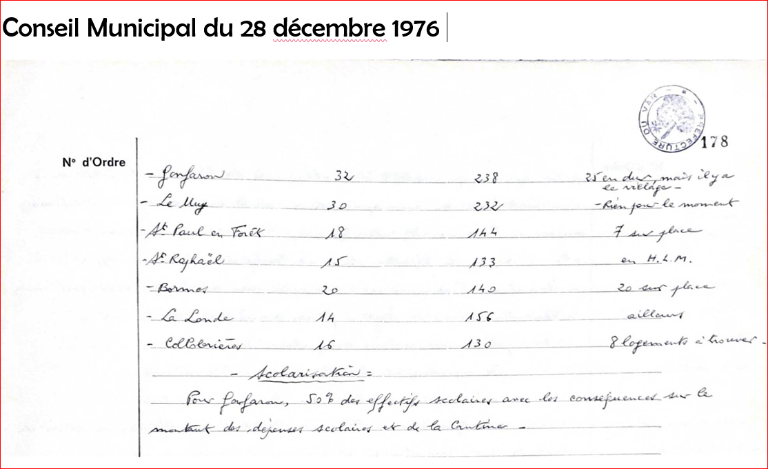 Conseil Municipal du 28 décembre 1976
PREFECTURE DU VAR
178
N° d'Ordre
- Gonfaron 32 238 25 en dur, mais il y a
le village -
- Le Muy 30 232 - Rien pour le moment
- St Paul en Forêt 18 144 7 sur place
- St Raphaël 15 133 en H.L.M.
- Bormes 20 140 20 sur place
- La Londe 14 156 ailleurs
- Collobrières 16 130 8 logements à trouver -
- Scolarisation :
Pour Gonfaron, 50% des effectifs scolaires avec les conséquences sur le
montant des dépenses scolaires et de la Cantine -